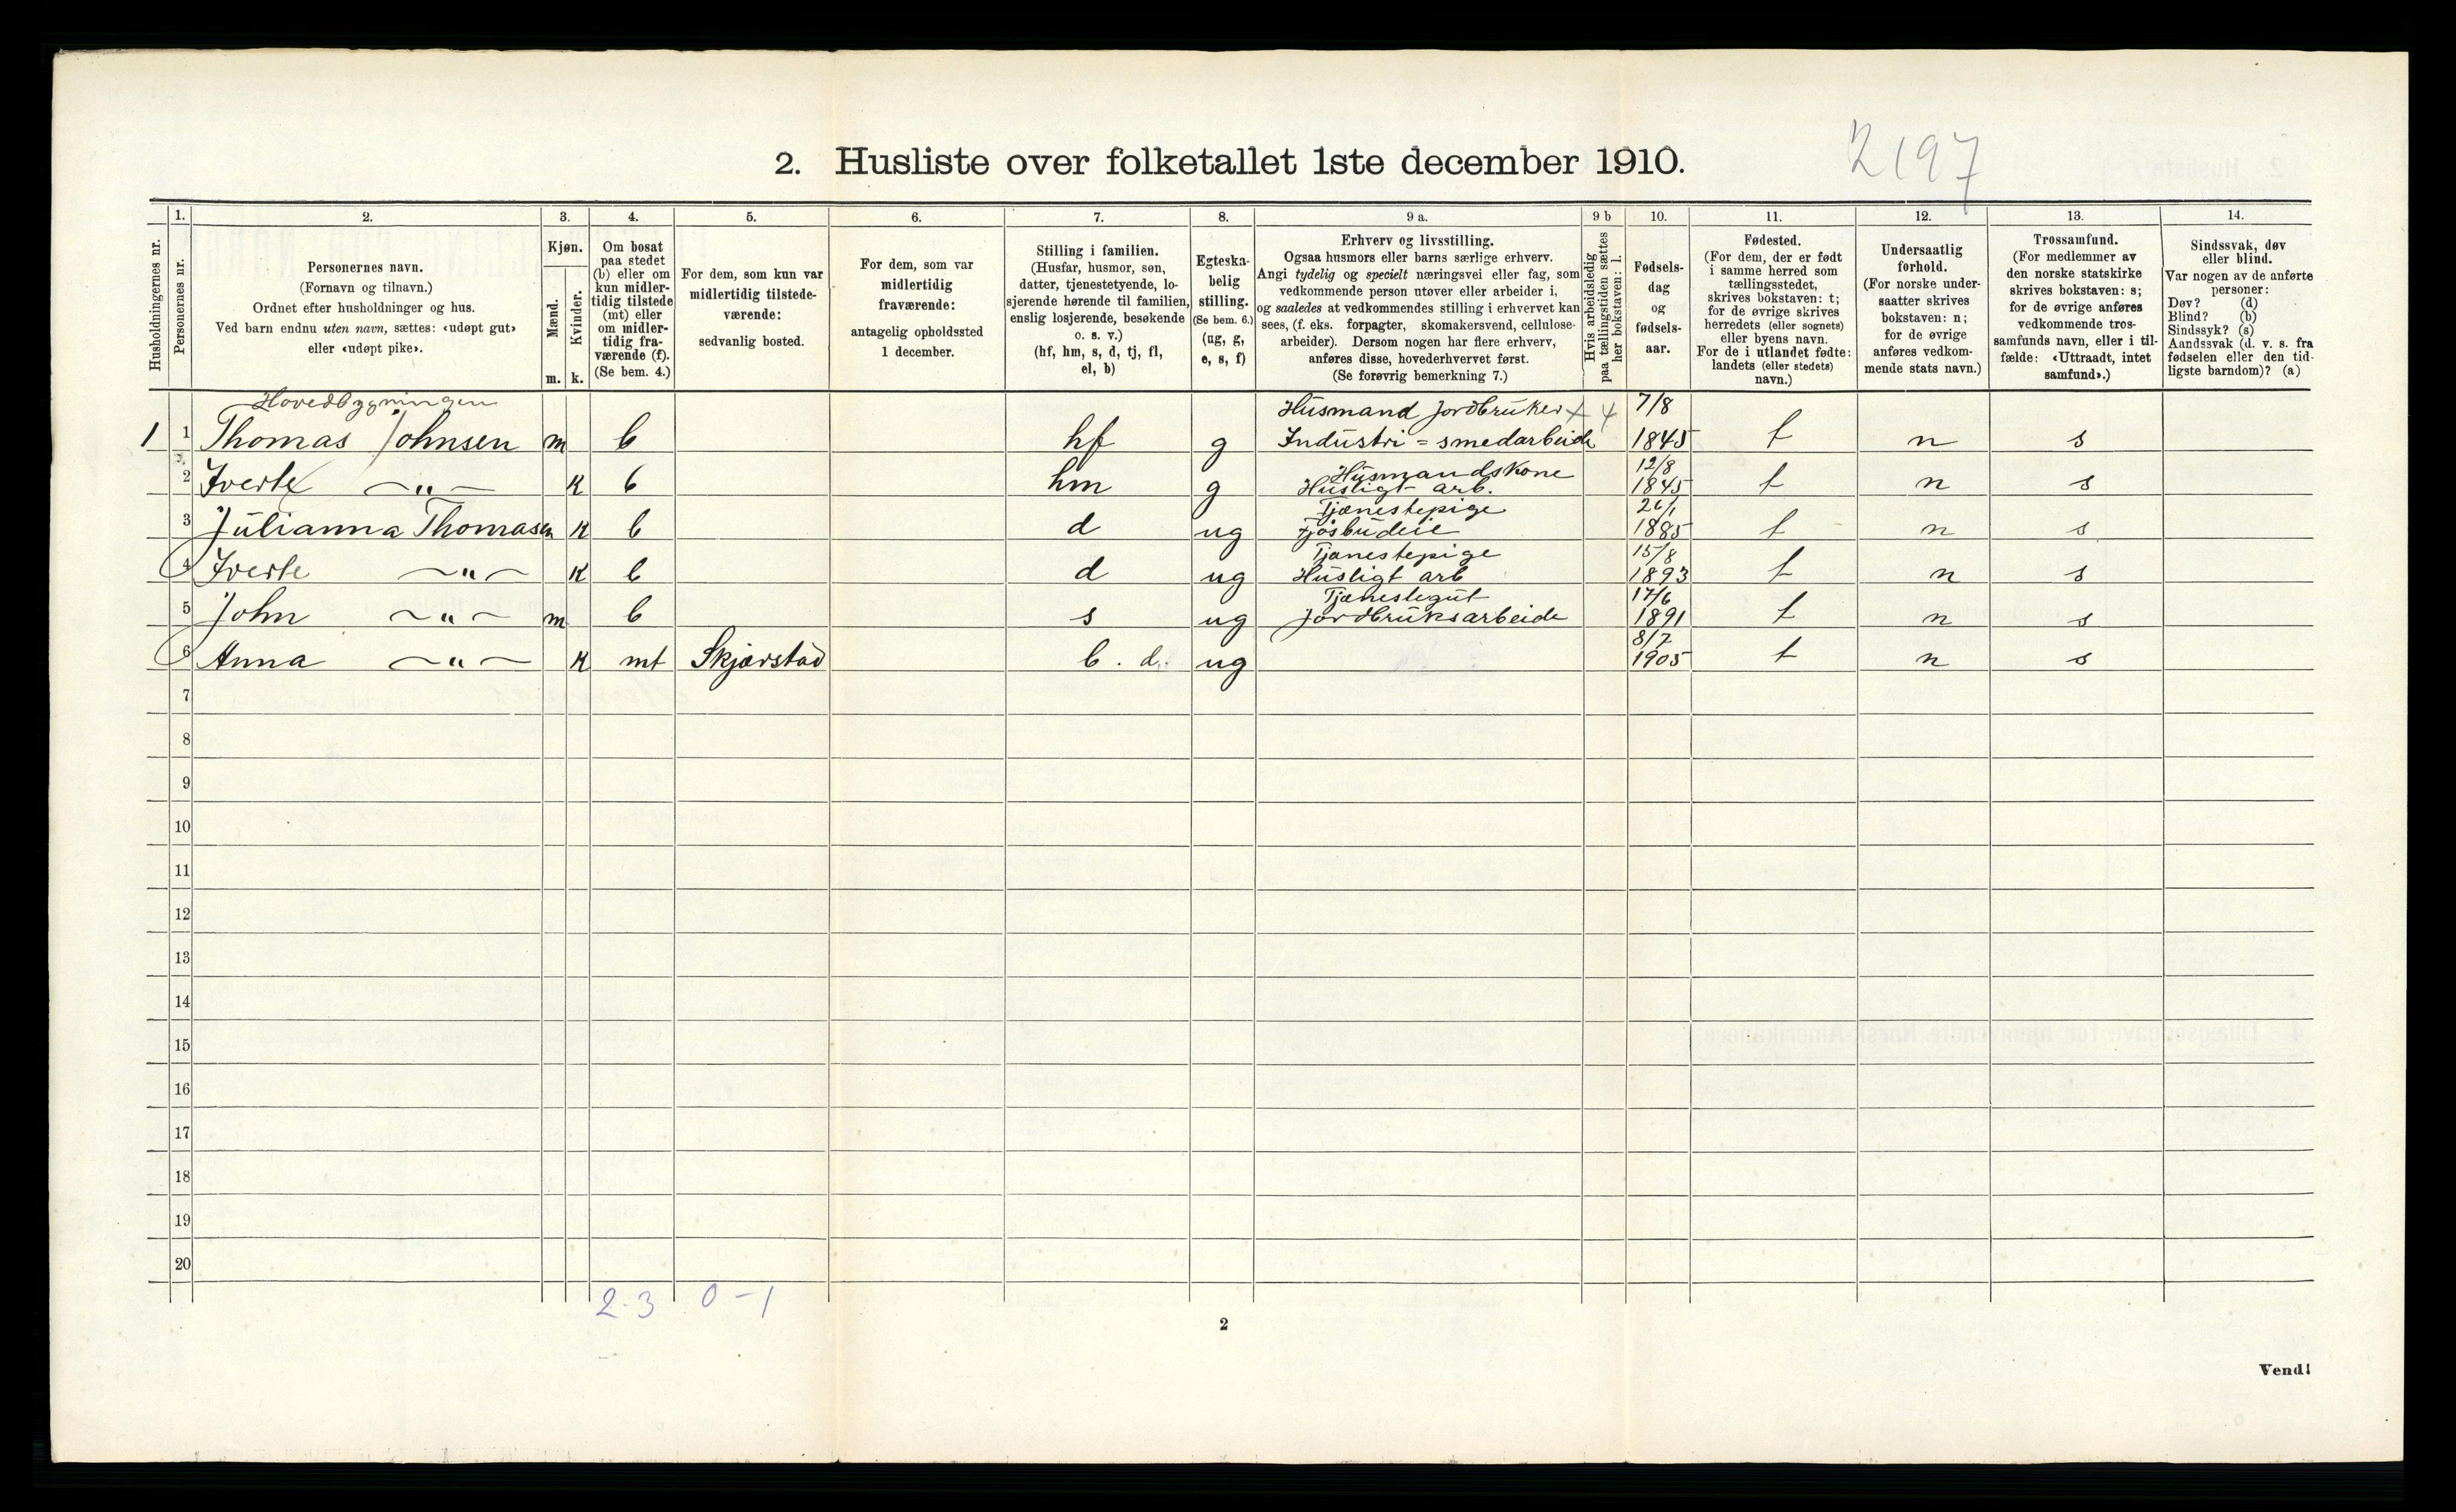 2197
2. Husliste over folketallet 1ste december 1910.
Husholdningernes nr.
1.
Personernes nr.
2.
Personernes navn.
(Fornavn og tilnavn.)
Ordnet efter husholdninger og hus.
Ved barn endnu uten navn, sættes: «udøpt gut»
eller «udøpt pike».
3.
Kjøn.
Mænd.
Kvinder.
m. k.
4.
Om bosat
paa stedet
(b) eller om
kun midler-
tidig tilstede
(mt) eller
om midler-
tidig fra-
værende (f).
(Se bem. 4.)
5.
For dem, som kun var
midlertidig tilstede-
værende:
sedvanlig bosted.
6.
For dem, som var
midlertidig
fraværende:
antagelig opholdssted
1 december.
7.
Stilling i familien.
(Husfar, husmor, søn,
datter, tjenestetyende, lo-
sjerende hørende til familien,
enslig losjerende, besøkende
o. s. v.)
(hf, hm, s, d, tj, fl,
el, b)
8.
Egteska-
belig
stilling.
(Se bem. 6.)
(ug, g,
e, s, f)
9 a.
Erhverv og livsstilling.
Ogsaa husmors eller barns særlige erhverv.
Angi tydelig og specielt næringsvei eller fag, som
vedkommende person utøver eller arbeider i,
og saaledes at vedkommendes stilling i erhvervet kan
sees, (f. eks. forpagter, skomakersvend, cellulose-
arbeider). Dersom nogen har flere erhverv,
anføres disse, hovederhvervet først.
(Se forøvrig bemerkning 7.)
9 b
Hvis arbeidsledig
paa tællingstiden sættes
her bokstaven: l.
10.
Fødsels-
dag
og
fødsels-
aar.
11.
Fødested.
(For dem, der er født
i samme herred som
tællingsstedet,
skrives bokstaven: t;
for de øvrige skrives
herredets (eller sognets)
eller byens navn.
For de i utlandet fødte:
landets (eller stedets)
navn.)
12.
Undersaatlig
forhold.
(For norske under-
saatter skrives
bokstaven: n;
for de øvrige
anføres vedkom-
mende stats navn.)
13.
Trossamfund.
(For medlemmer av
den norske statskirke
skrives bokstaven: s;
for de øvrige anføres
vedkommende tros-
samfunds navn, eller i til-
fælde: «Uttraadt, intet
samfund».)
14.
Sindssvak, døv
eller blind.
Var nogen av de anførte
personer:
Døv? (d)
Blind? (b)
Sindssyk? (s)
Aandssvak (d. v. s. fra
fødselen eller den tid-
ligste barndom)? (a)
Hovedbygningen Husmand Jordbruker x 4 7/8
1 1 Thomas Johnsen m b hf g Industri = smedarbeide 1845 t n s
Husmandskone 12/8
2 Iverte —„— K b hm g Husligt arb. 1845 t n s
Tjænestepige 26/1
3 Julianna Thomasen K b d ug Fjøsbudeie 1885 t n s
Tjænestepige 15/8
4 Iverte —„— K b d ug Husligt arb 1893 t n s
Tjænestegut 17/6
5 John —„— m b s ug Jordbruksarbeide 1891 t n s
8/7
6 Anna —„— K mt Skjærstad b. d. ug 1905 t n s
7
8
9
10
11
12
13
14
15
16
17
18
19
20
2-3 0-1
2
Vend!